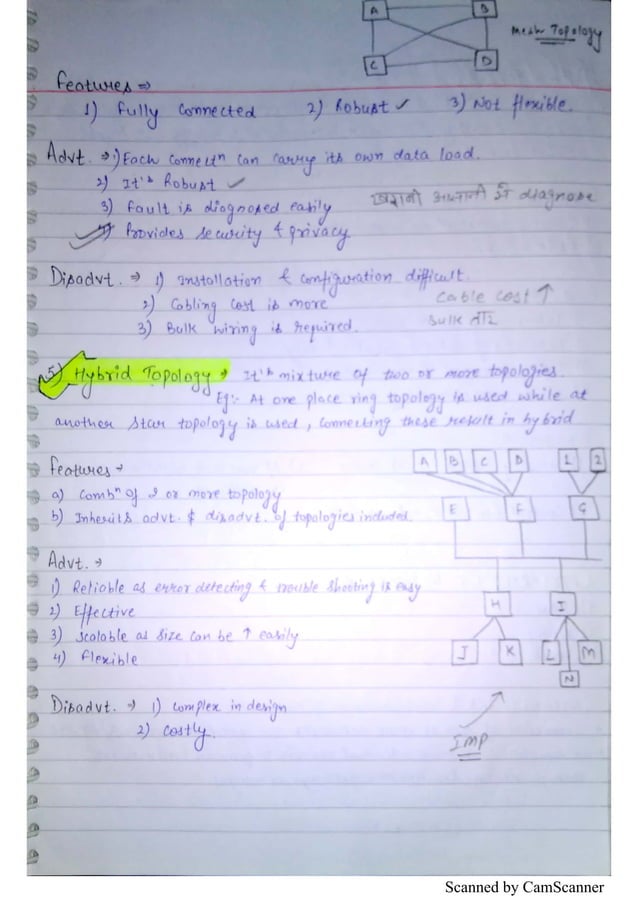 A B
Mesh Topology
C D
Features ⇒
1) Fully Connected 2) Robust ✓ 3) Not flexible.
Advt. ⇒ 1) Each connectⁿ can carry its own data load.
2) It's Robust ✓
3) Fault is diagnosed easily
आसानी से diagnose
4) Provides security & privacy
Disadvt. ⇒ 1) Installation & configuration difficult.
2) Cabling cost is more
Cable cost ↑
3) Bulk wiring is required.
Bulk
5) Hybrid Topology → It's mixture of two or more topologies.
Eg:- At one place ring topology is used while at
another star topology is used, connecting these result in hybrid
Features →
A B C D 1 2
a) Combⁿ of 2 or more topology
b) Inherits advt. & disadvt. of topologies included.
E F G
Advt. →
1) Reliable as error detecting & trouble shooting is easy
2) Effective
H I
3) Scalable as size can be ↑ easily
4) Flexible
J K L M
N
Disadvt. → 1) Complex in design
2) Costly.
IMP
Scanned by CamScanner